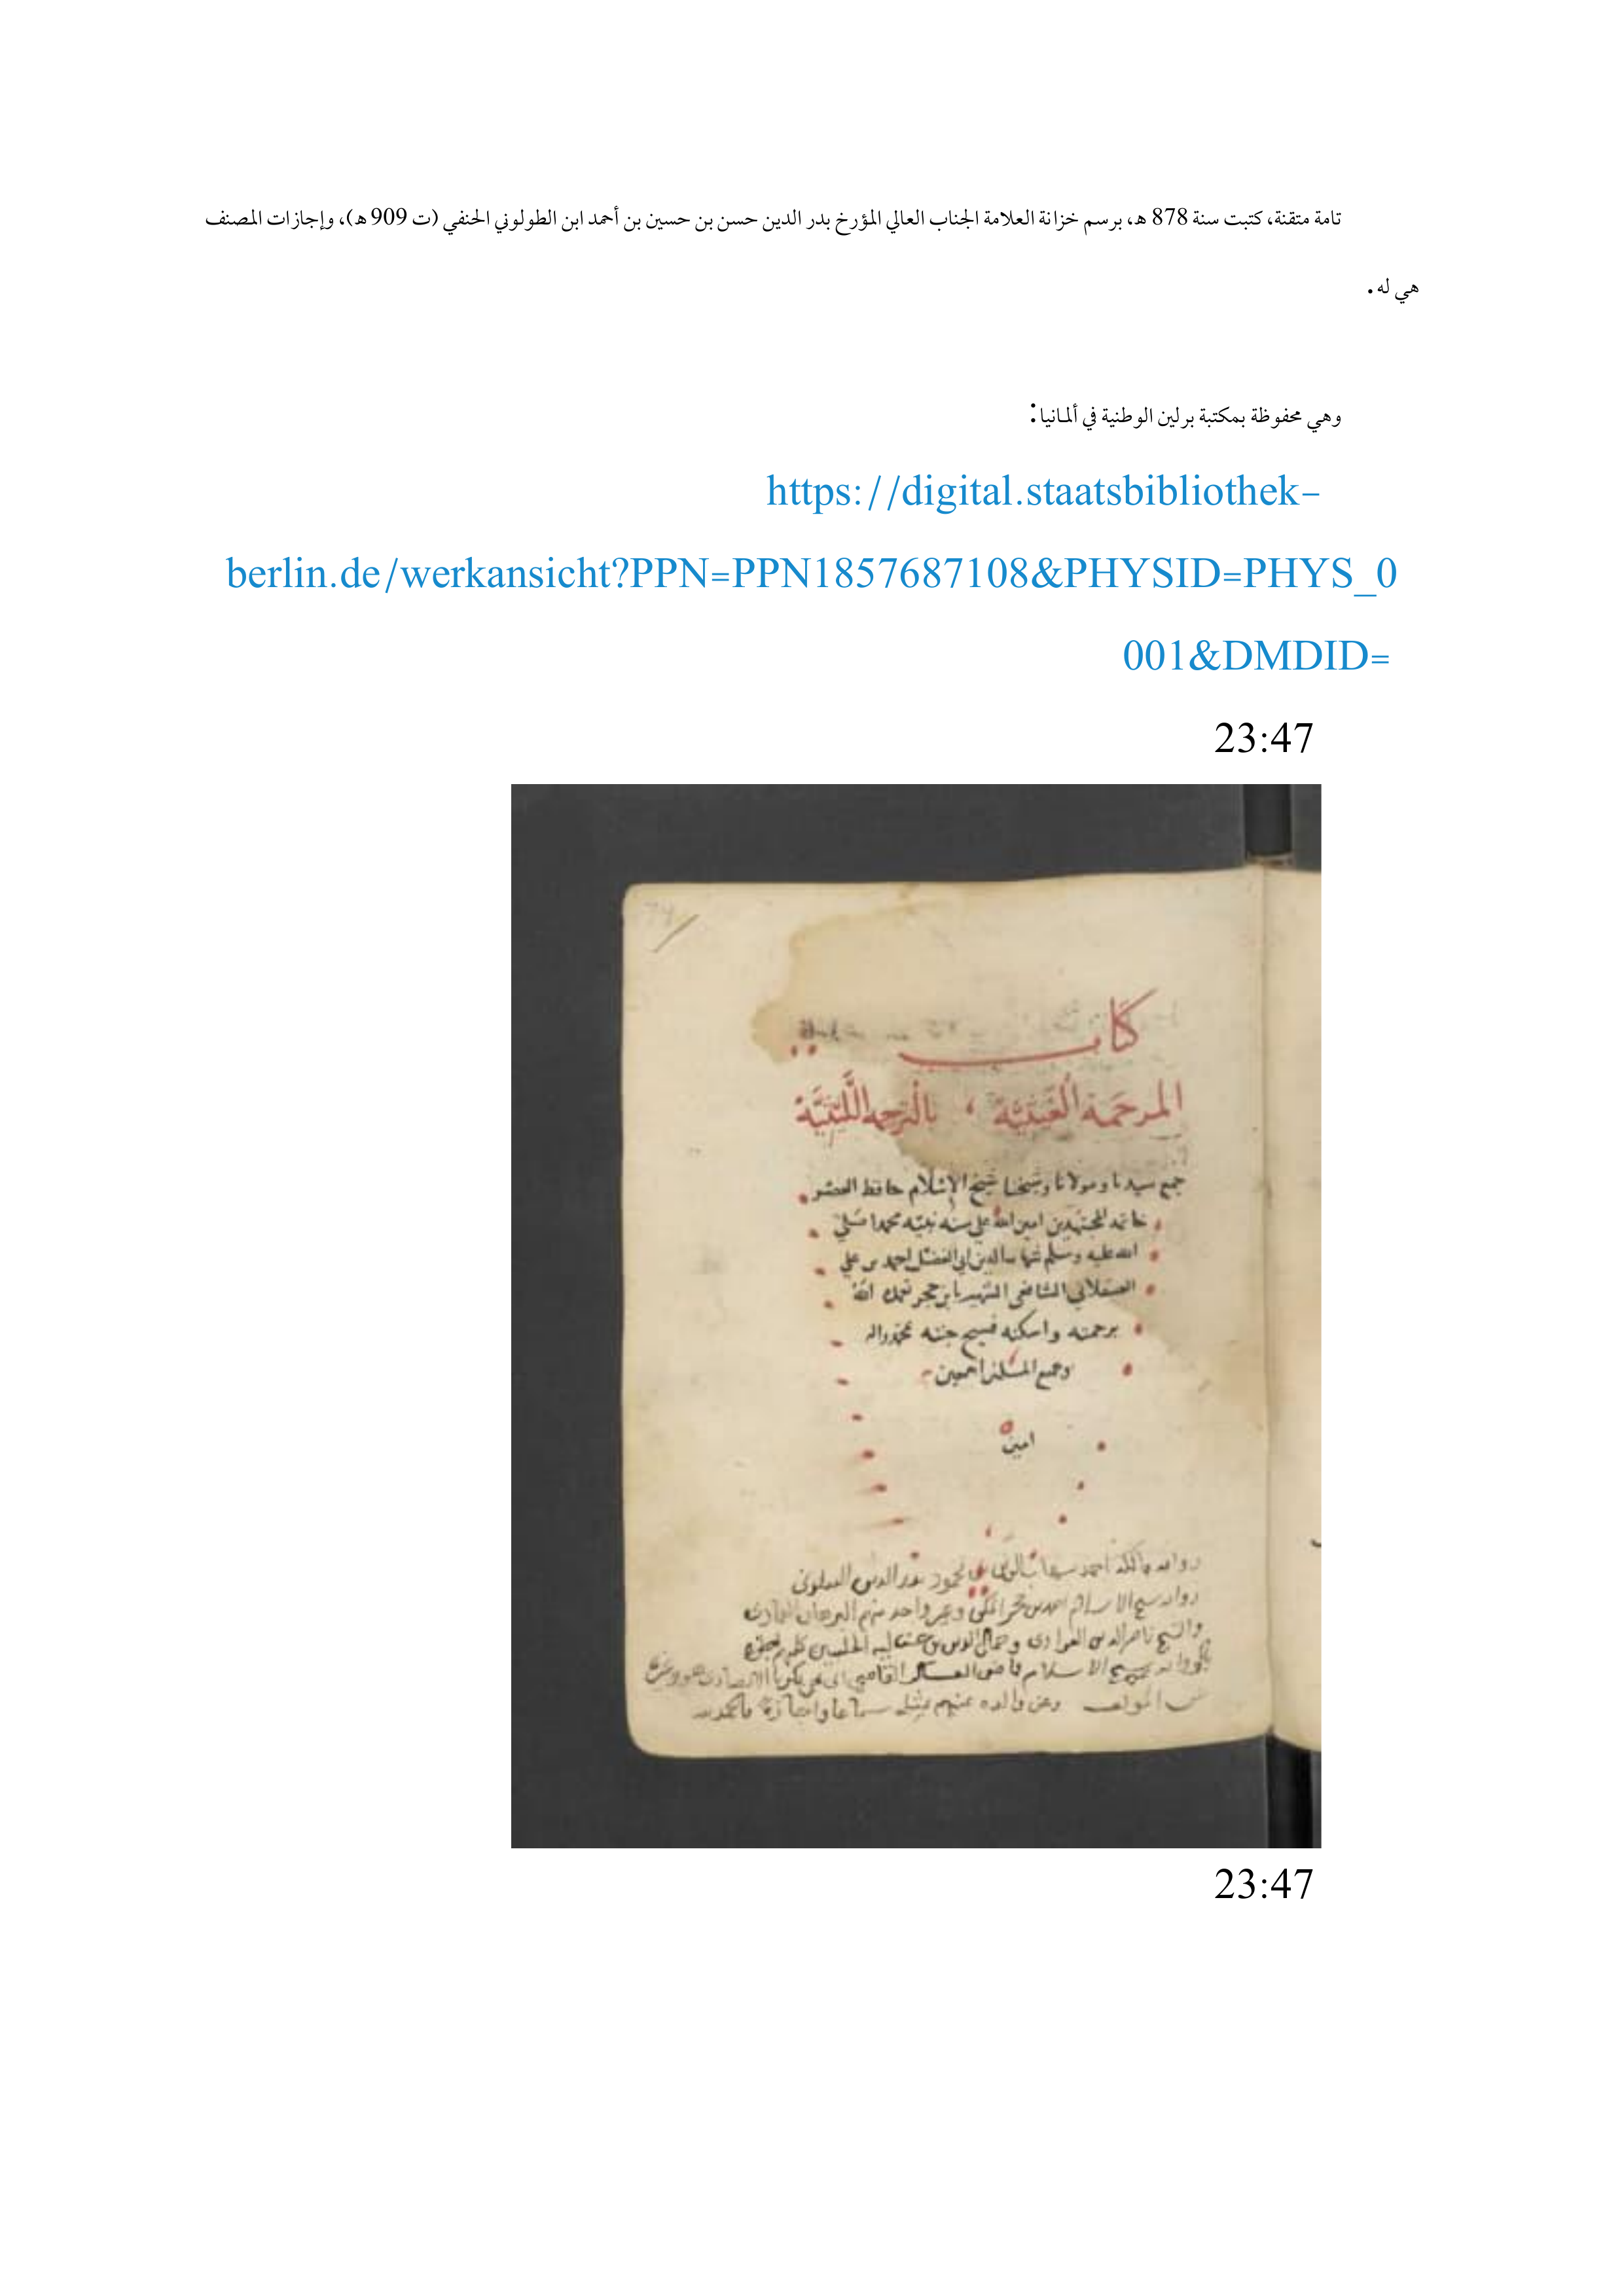 تامة متقنة، كتبت سنة 878 هـ، برسم خزانة العلامة الجناب العالي المؤرخ بدر الدين حسن بن حسين بن أحمد ابن الطولوني الحنفي (ت 909 هـ)، وإجازات المصنف
هي له.
وهي محفوظة بمكتبة برلين الوطنية في ألمانيا:
https://digital.staatsbibliothek-
berlin.de/werkansicht?PPN=PPN1857687108&PHYSID=PHYS_0
001&DMDID=
23:47
كتاب
المرحمة الغيثية ، بالترجمة الليثية
جمع سيدنا ومولانا وشيخنا شيخ الإسلام حافظ العصر
خاتمة المجتهدين امين الله على سنة نبيه محمد صلى
الله عليه وسلم شهاب الدين ابي الفضل احمد بن علي
العسقلاني الشافعي الشهير بابن حجر تغمده الله
برحمته واسكنه فسيح جنته بمحمد واله
وجميع المسلمين اجمعين
امين
المؤلف وعن والده عنهم مثله سماعا واجازة
23:47